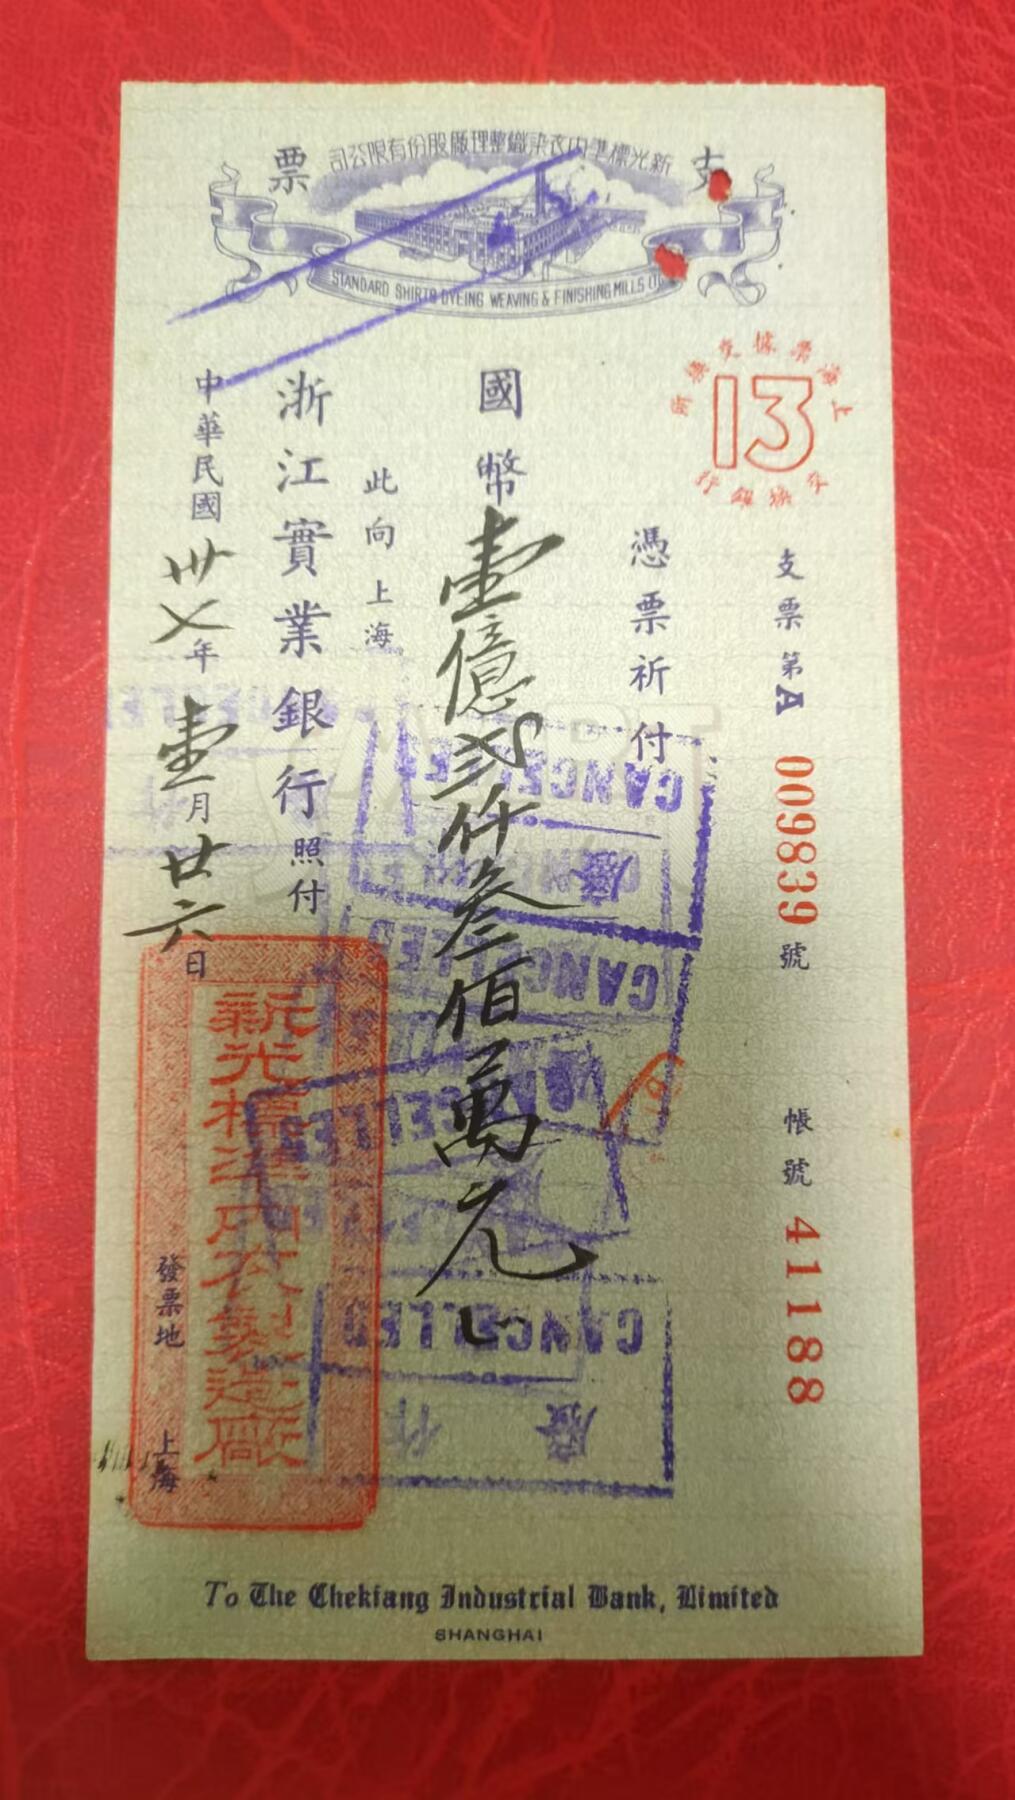 支票
新光標準内衣染織整理廠股份有限公司
STANDARD SHIRTS DYEING WEAVING & FINISHING MILLS LTD
上海票據交換所
13
交換銀行
支票第A 009839號
帳號 41188
憑票祈付
國幣壹億弍仟叁佰萬元
此向上海
浙江實業銀行照付
中華民國卅七年壹月廿六日
新光標準内衣製造廠
發票地 上海
CANCELLED
CANCELLED
CANCELLED
CANCELLED
作廢
To The Chekiang Industrial Bank, Limited
SHANGHAI